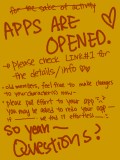 for the sake of activity
APPS ARE
OPENED. ♡
→ please check LINK#1 for
the details/info ♡
- old members, feel free to make changes
to your character(s) now -
- please put effort to your app :,)
you may be asked to redo your app
if the effort is effortless...
so yeah ~
Questions?